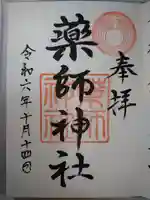 奉拝
薬師神社
令和六年十月十四日